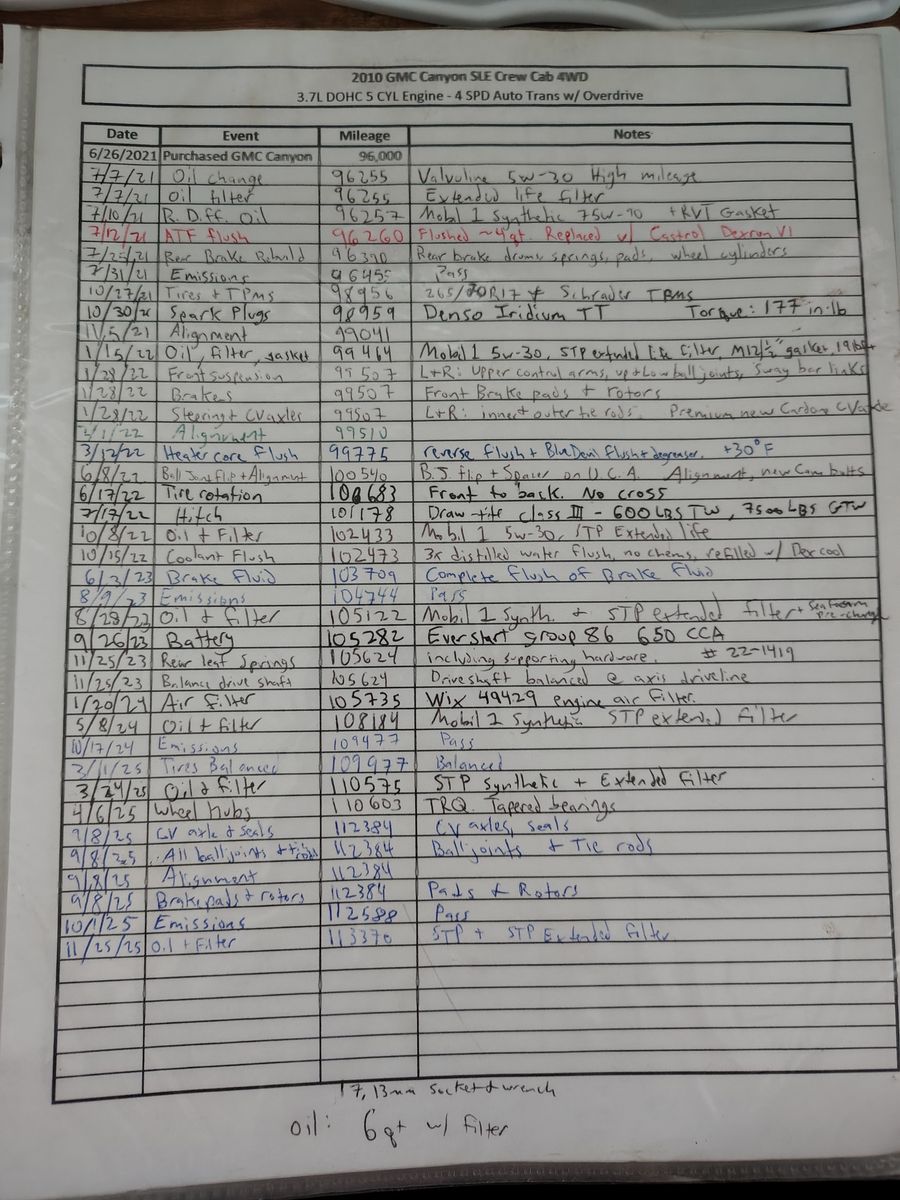 2010 GMC Canyon SLE Crew Cab 4WD
3.7L DOHC 5 CYL Engine - 4 SPD Auto Trans w/ Overdrive
Date Event Mileage Notes
6/26/2021 Purchased GMC Canyon 96,000
7/7/21 Oil change 96255 Valvoline 5w-30 High mileage
7/7/21 Oil filter 96255 Extended life filter
7/10/21 R. Diff. Oil 96257 Mobil 1 Synthetic 75w-90 + RVT Gasket
7/12/21 ATF flush 96260 Flushed ~4qt. Replaced w/ Castrol Dexron VI
7/25/21 Rear Brake Rebuild 96390 Rear brake drums, springs, pads, wheel cylinders
7/31/21 Emissions 96455 Pass
10/27/21 Tires + TPMS 98956 265/70R17 + Schrader TPMS
10/30/21 Spark Plugs 98959 Denso Iridium TT Torque: 177 in·lb
11/5/21 Alignment 99041
1/15/22 Oil, filter, gasket 99464 Mobil 1 5w-30, STP extended life filter, M12/½" gasket,
1/28/22 Front suspension 99507 L+R: Upper control arms, up + low ball joints, Sway bar links
1/28/22 Brakes 99507 Front Brake pads + rotors
1/28/22 Steering + CV axles 99507 L+R: inner + outer tie rods. Premium new Cardone CV axle
2/1/22 Alignment 99510
3/12/22 Heater core flush 99775 reverse flush + Blue Devil flush + degreaser. +30°F
6/8/22 Ball Joint flip + Alignment 100540 B.J. flip + Spacer on U.C.A. Alignment, new Cam bolts
6/17/22 Tire rotation 100683 Front to back. No cross
7/17/22 Hitch 101178 Draw-tite class III - 600 LBS TW, 7500 LBS GTW
10/8/22 Oil + Filter 102433 Mobil 1 5w-30, STP Extended life
10/15/22 Coolant Flush 102473 3x distilled water flush, no chems, refilled w/ Dexcool
6/3/23 Brake Fluid 103709 Complete flush of Brake Fluid
8/9/23 Emissions 104744 Pass
8/28/23 Oil + filter 105122 Mobil 1 Synth. + STP extended filter + Seafoam pre-change
9/26/23 Battery 105282 Everstart group 86 650 CCA
11/25/23 Rear leaf Springs 105624 including supporting hardware. # 22-1419
11/25/23 Balance drive shaft 105624 Driveshaft balanced @ axis driveline
1/20/24 Air filter 105735 Wix 49429 engine air filter.
5/8/24 Oil + filter 108184 Mobil 1 Synthetic STP extended filter
10/17/24 Emissions 109477 Pass
3/1/25 Tires Balanced 109977 Balanced
3/24/25 Oil + filter 110575 STP synthetic + Extended filter
4/6/25 Wheel Hubs 110603 TRQ. Tapered bearings
9/8/25 CV axle + seals 112384 CV axles, seals
9/8/25 All ball joints + tie rods 112384 Ball joints + Tie rods
9/8/25 Alignment 112384
9/8/25 Brake pads + rotors 112384 Pads + Rotors
10/1/25 Emissions 112588 Pass
11/25/25 Oil + Filter 113370 STP + STP Extended filter
17, 13mm socket + wrench
oil: 6qt w/ filter